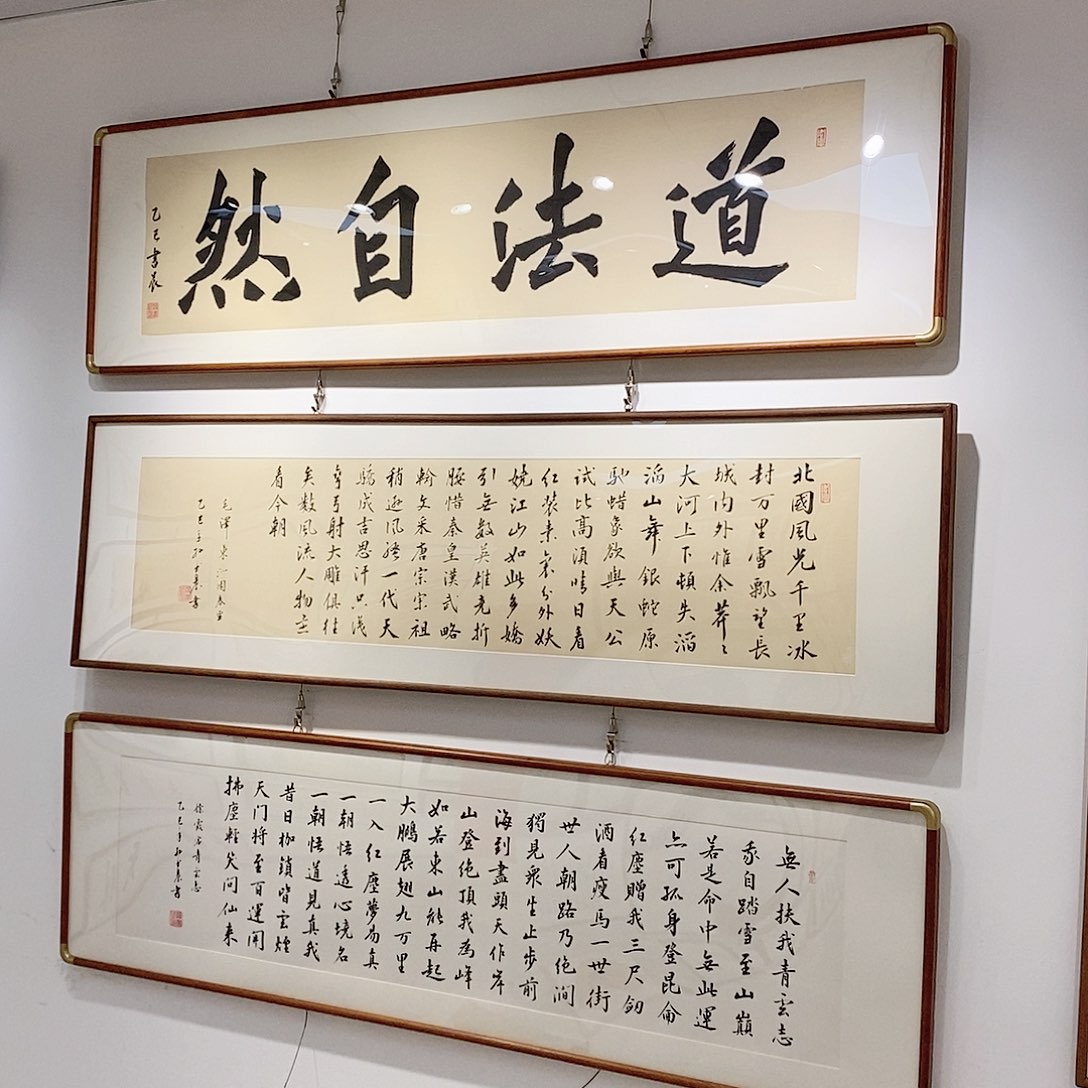 道法自然
乙巳書
北國風光千里冰
封万里雪飄望長
城内外惟余莽〻
大河上下頓失滔
滔山舞銀蛇原
馳蜡象欲與天公
試比高須晴日看
红装素裹分外妖
娆江山如此多嬌
引無数英雄竞折
腰惜秦皇漢武略
輸文采唐宗宋祖
稍遜风騷一代天
驕成吉思汗只識
彎弓射大雕俱往
矣数风流人物還
看今朝
毛澤東沁園春雪
乙巳年書
無人扶我青雲志
我自踏雪至山巔
若是命中無此運
亦可孤身登昆侖
红塵贈我三尺劍
酒看瘦馬一世街
世人朝路乃绝澗
獨見衆生止步前
海到盡頭天作岸
山登绝頂我為峰
如若東山能再起
大鵬展翅九万里
一入红塵夢易真
一朝悟透心境名
一朝悟道見真我
昔日枷鎖皆雲煌
天门将至百運開
拂塵輕笑问仙来
徐霞客青雲志
乙巳年書